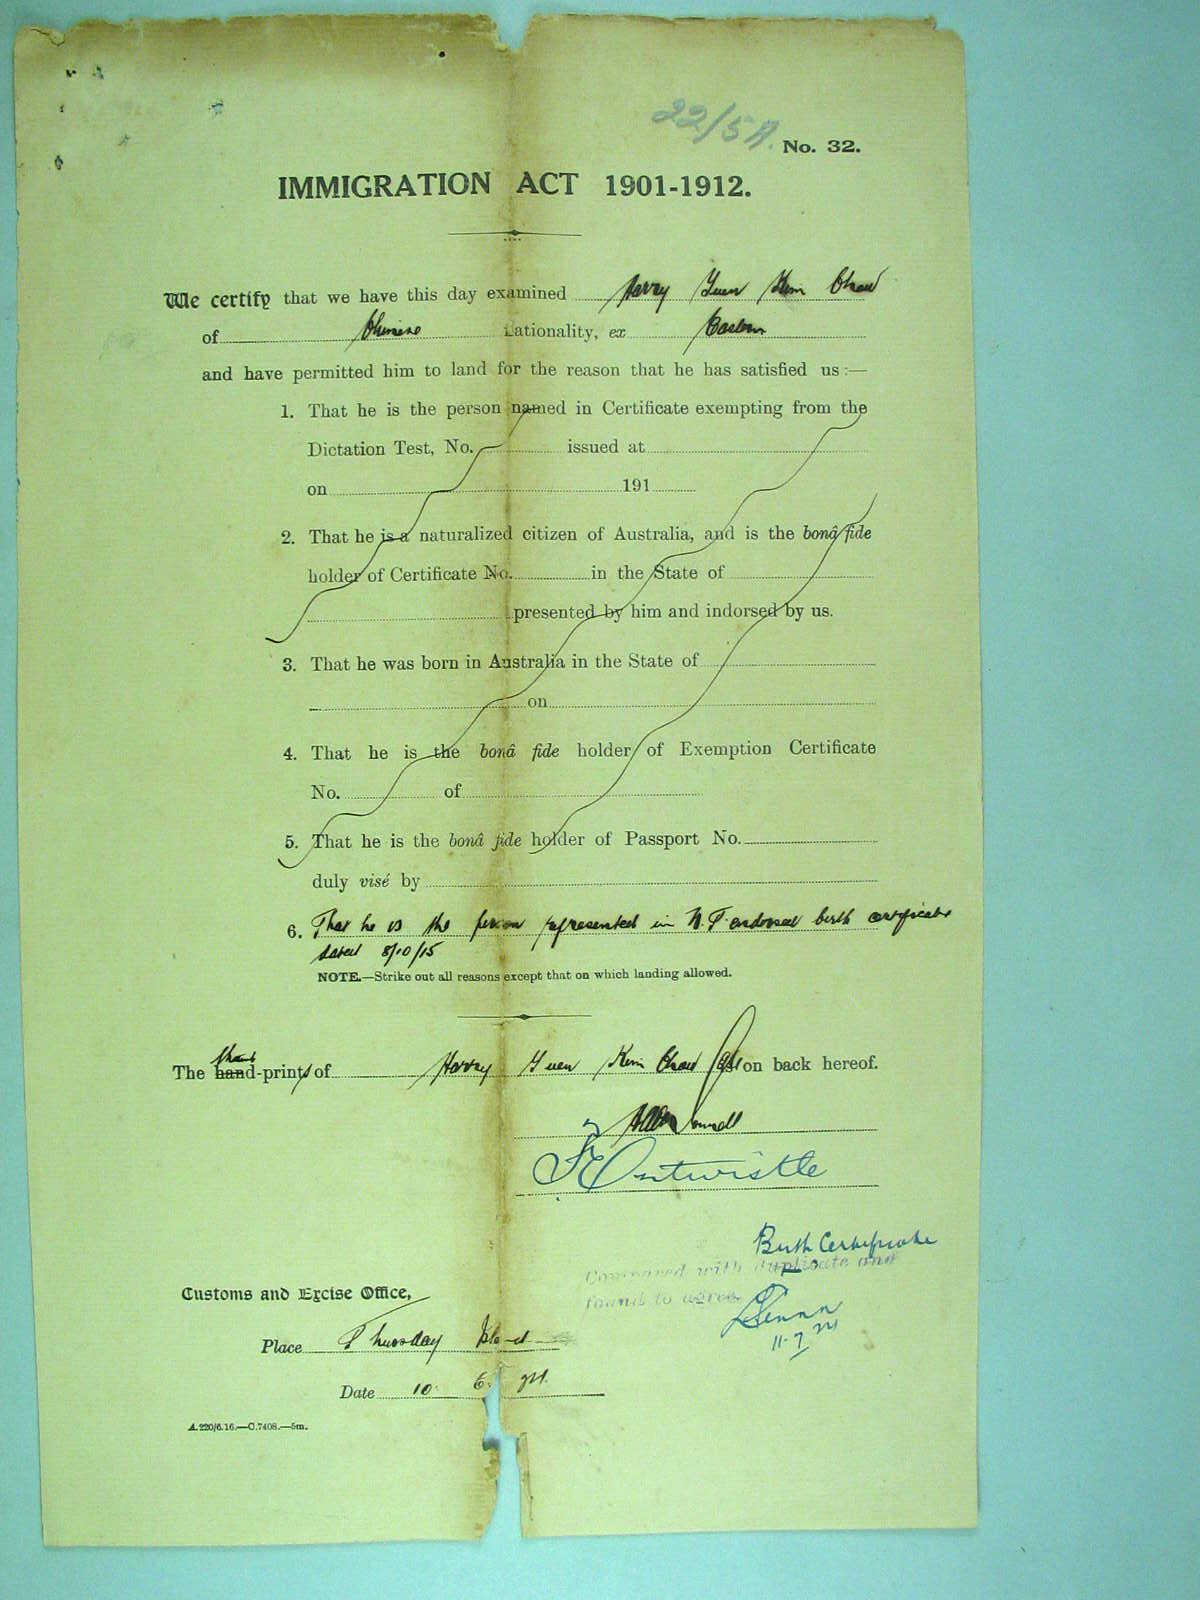 22/5A.
No. 32.
IMMIGRATION ACT 1901-1912.
We certify that we have this day examined Harry Yuen Kim Chaw
of Chinese Nationality, ex Eastern
and have permitted him to land for the reason that he has satisfied us :—
1. That he is the person named in Certificate exempting from the
Dictation Test, No. issued at
on 191
2. That he is a naturalized citizen of Australia, and is the bonâ fide
holder of Certificate No. in the State of
presented by him and indorsed by us.
3. That he was born in Australia in the State of
on
4. That he is the bonâ fide holder of Exemption Certificate
No. of
5. That he is the bonâ fide holder of Passport No.
duly visé by
6. That he is the person represented in N.T. endorsed birth certificate
dated 8/10/15
NOTE.—Strike out all reasons except that on which landing allowed.
thumb
The hand-prints of Harry Yuen Kim Chaw on back hereof.
F Entwistle
Birth Certificate
Compared with duplicate and
found to agree
11-7-21
Customs and Excise Office,
Place Thursday Island
Date 10. 6. 21.
A.220/6.16.—C.7408.—5m.